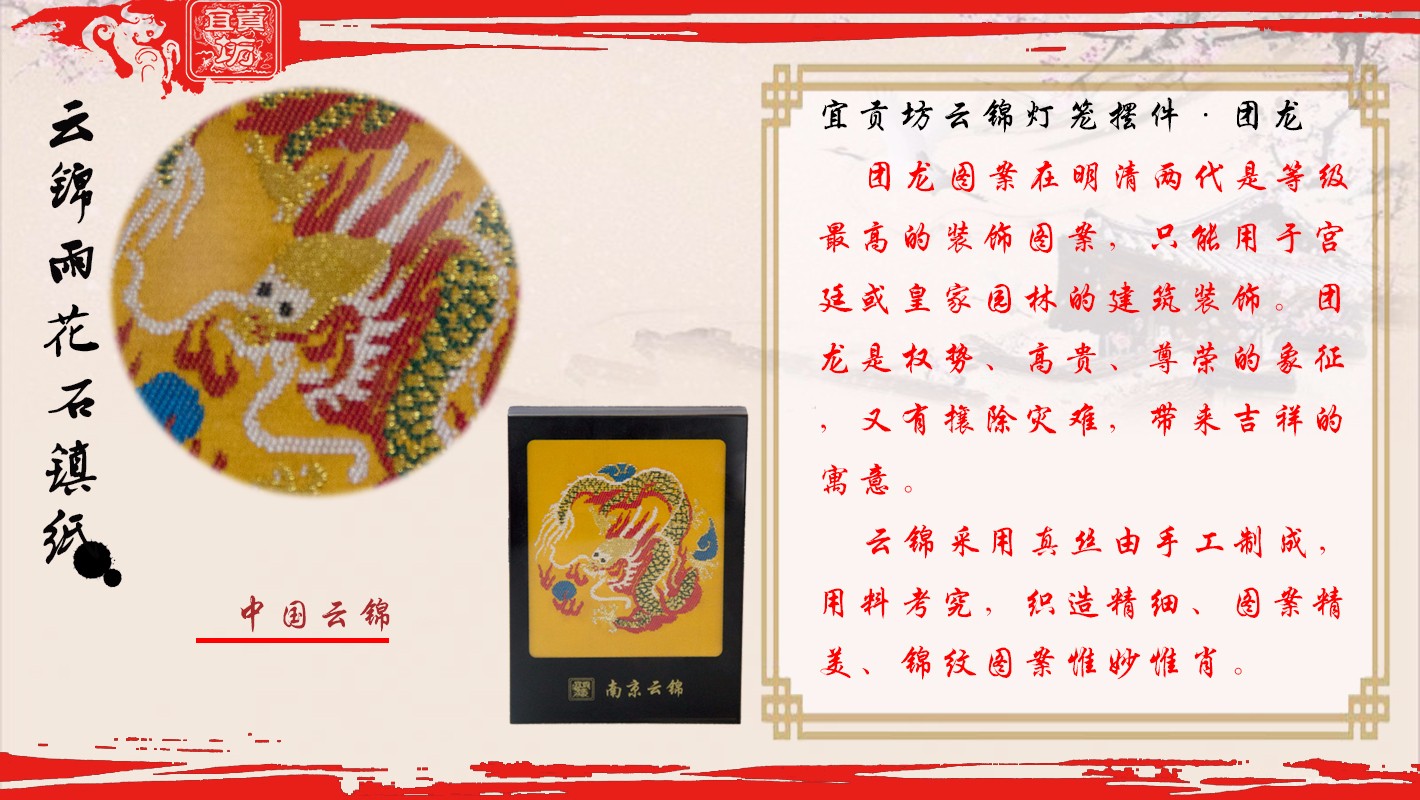 宜贡坊
云锦雨花石镇纸
中国云锦
南京云锦
宜贡坊云锦灯笼摆件·团龙
团龙图案在明清两代是等级
最高的装饰图案，只能用于宫
廷或皇家园林的建筑装饰。团
龙是权势、高贵、尊荣的象征
，又有攘除灾难，带来吉祥的
寓意。
云锦采用真丝由手工制成，
用料考究，织造精细、图案精
美、锦纹图案惟妙惟肖。